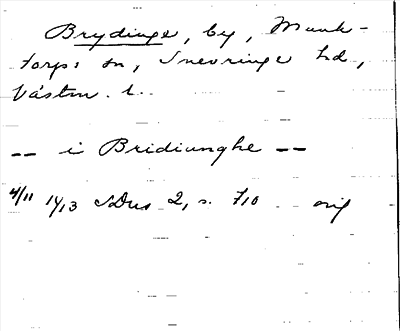 Brydinge, by, Munk-
torps sn, Snevringe hd,
Västm. l.
-- i Bridiunghe --
4/11 1413 SDns 2, s. 710 orig